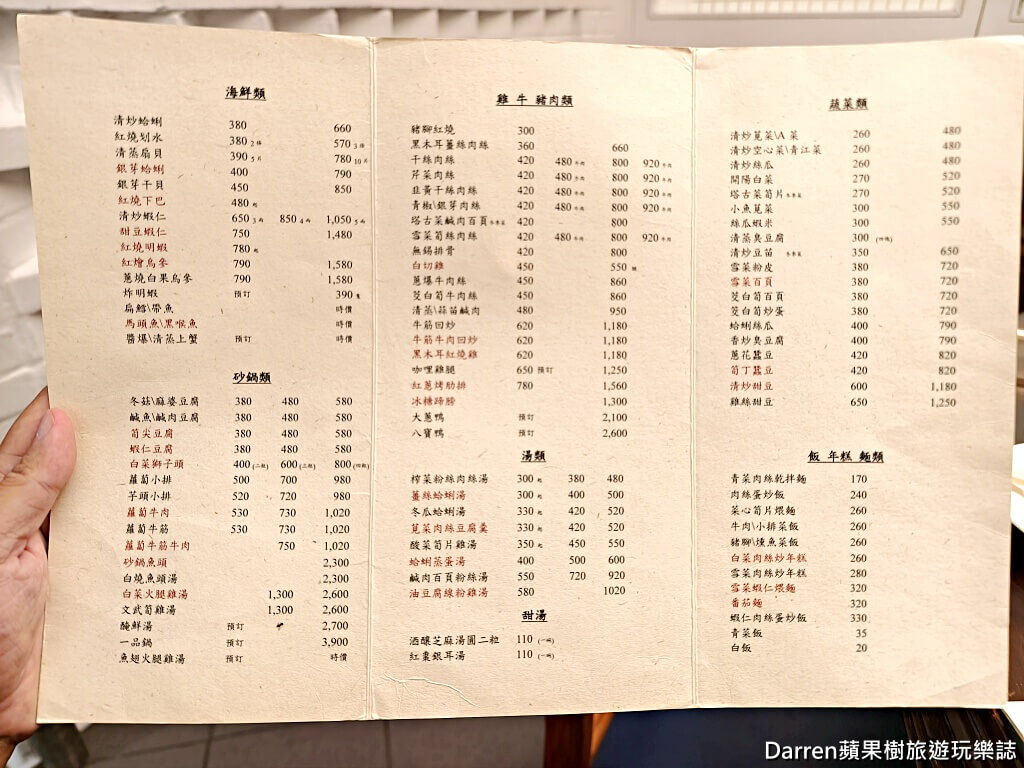 海鮮類
清炒蛤蜊 380 660
紅燒划水 380 2條 570 3條
清蒸扇貝 390 5片 780 10片
銀芽蛤蜊 400 790
銀芽干貝 450 850
紅燒下巴 480 起
清炒蝦仁 650 3兩 850 4兩 1,050 5兩
甜豆蝦仁 750 1,480
紅燒明蝦 780 起
紅燴烏參 790 1,580
蔥燒白果烏參 790 1,580
炸明蝦 預訂 390 隻
扁鱈\帶魚 時價
馬頭魚\黑喉魚 時價
醬爆\清蒸上蟹 預訂 時價
砂鍋類
冬菇\麻婆豆腐 380 480 580
鹹魚\鹹肉豆腐 380 480 580
筍尖豆腐 380 480 580
蝦仁豆腐 380 480 580
白菜獅子頭 400 (二粒) 600 (三粒) 800 (四粒)
蘿蔔小排 500 700 980
芋頭小排 520 720 980
蘿蔔牛肉 530 730 1,020
蘿蔔牛筋 530 730 1,020
蘿蔔牛筋牛肉 750 1,020
砂鍋魚頭 2,300
白燒魚頭湯 2,300
白菜火腿雞湯 1,300 2,600
文武筍雞湯 1,300 2,600
醃鮮湯 預訂 2,700
一品鍋 預訂 3,900
魚翅火腿雞湯 預訂 時價
雞 牛 豬肉類
豬腳紅燒 300
黑木耳薑絲肉絲 360 660
干絲肉絲 420 480 牛肉 800 920 牛肉
芹菜肉絲 420 480 牛肉 800 920 牛肉
韭黃干絲肉絲 420 480 牛肉 800 920 牛肉
青椒\銀芽肉絲 420 480 牛肉 800 920 牛肉
塔古菜鹹肉百頁 冬季菜 420 800
雪菜筍絲肉絲 420 480 牛肉 800 920 牛肉
無錫排骨 420 800
白切雞 450 550 腿
蔥爆牛肉絲 450 860
茭白筍牛肉絲 450 860
清蒸\蒜苗鹹肉 480 950
牛筋回炒 620 1,180
牛筋牛肉回炒 620 1,180
黑木耳紅燒雞 620 1,180
咖哩雞腿 650 預訂 1,250
紅蔥烤肋排 780 1,560
冰糖蹄膀 1,300
大蔥鴨 預訂 2,100
八寶鴨 預訂 2,600
湯類
榨菜粉絲肉絲湯 300 起 380 480
薑絲蛤蜊湯 300 起 400 500
冬瓜蛤蜊湯 330 起 420 520
莧菜肉絲豆腐羹 330 起 420 520
酸菜筍片雞湯 350 起 450 550
蛤蜊蒸蛋湯 400 500 600
鹹肉百頁粉絲湯 550 720 920
油豆腐線粉雞湯 580 1020
甜湯
酒釀芝麻湯圓二粒 110 (一碗)
紅棗銀耳湯 110 (一碗)
蔬菜類
清炒莧菜\A菜 260 480
清炒空心菜\青江菜 260 480
清炒絲瓜 260 480
開陽白菜 270 520
塔古菜筍片 冬季菜 270 520
小魚莧菜 300 550
絲瓜蝦米 300 550
清蒸臭豆腐 300 (四塊)
清炒豆苗 冬季菜 350 650
雪菜粉皮 380 720
雪菜百頁 380 720
茭白筍百頁 380 720
茭白筍炒蛋 380 720
蛤蜊絲瓜 400 790
香炒臭豆腐 400 790
蔥花蠶豆 420 820
筍丁蠶豆 420 820
清炒甜豆 600 1,180
雞絲甜豆 650 1,250
飯 年糕 麵類
青菜肉絲乾拌麵 170
肉絲蛋炒飯 240
菜心筍片煨麵 260
牛肉\小排菜飯 260
豬腳\燻魚菜飯 260
白菜肉絲炒年糕 260
雪菜肉絲炒年糕 280
雪菜蝦仁煨麵 320
番茄麵 320
蝦仁肉絲蛋炒飯 330
青菜飯 35
白飯 20
Darren蘋果樹旅遊玩樂誌